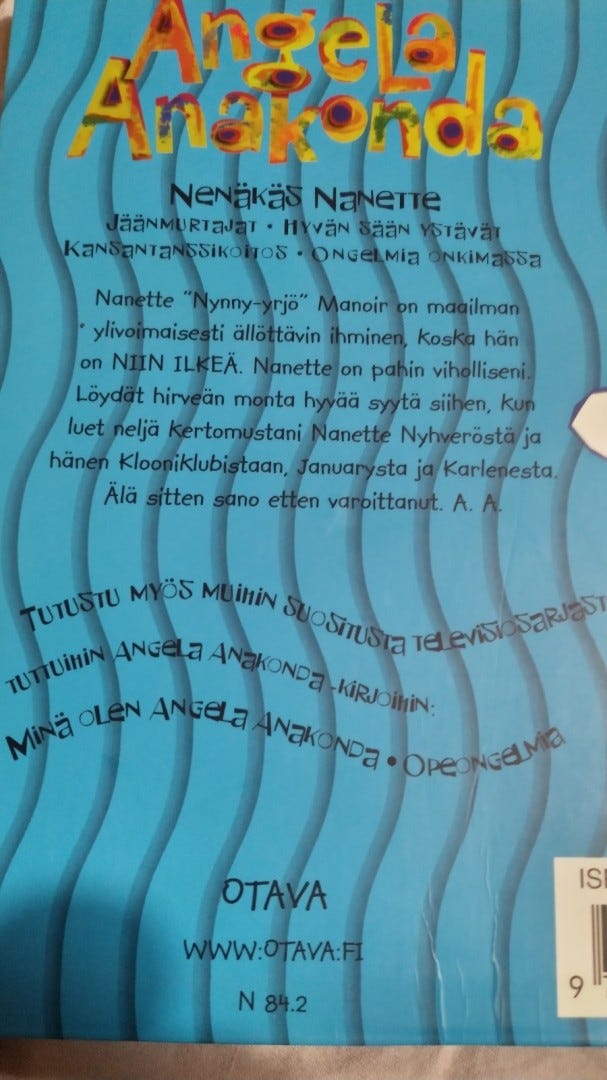 Angela
Anakonda
Nenäkäs Nanette
Jäänmurtajat • Hyvän sään ystävät
Kansantanssikoitos • Ongelmia onkimassa
Nanette "Nynny-yrjö" Manoir on maailman
ylivoimaisesti ällöttävin ihminen, koska hän
on NIIN ILKEÄ. Nanette on pahin viholliseni.
Löydät hirveän monta hyvää syytä siihen, kun
luet neljä kertomustani Nanette Nyhveröstä ja
hänen Klooniklubistaan, Januarysta ja Karlenesta.
Älä sitten sano etten varoittanut. A. A.
Tutustu myös muihin suositusta televisiosarjast
tuttuihin Angela Anakonda -kirjoihin:
Minä olen Angela Anakonda • Opeongelmia
OTAVA
WWW.OTAVA.FI
N 84.2
9